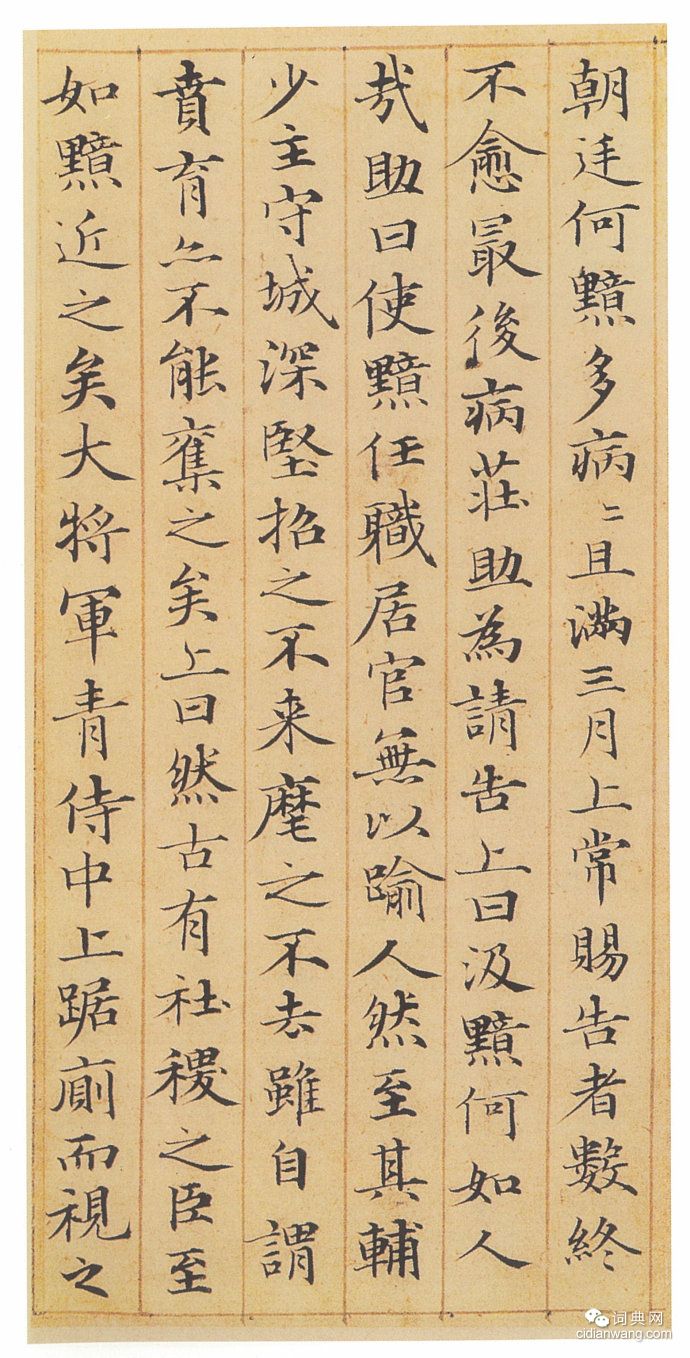 朝廷何黯多病〻且滿三月上常賜告者數終
不愈最後病莊助為請告上曰汲黯何如人
哉助曰使黯任職居官無以踰人然至其輔
少主守城深堅招之不来麾之不去雖自謂
賁育亦不能奪之矣上曰然古有社稷之臣至
如黯近之矣大將軍青侍中上踞廁而視之
词典网
cidianwang.com